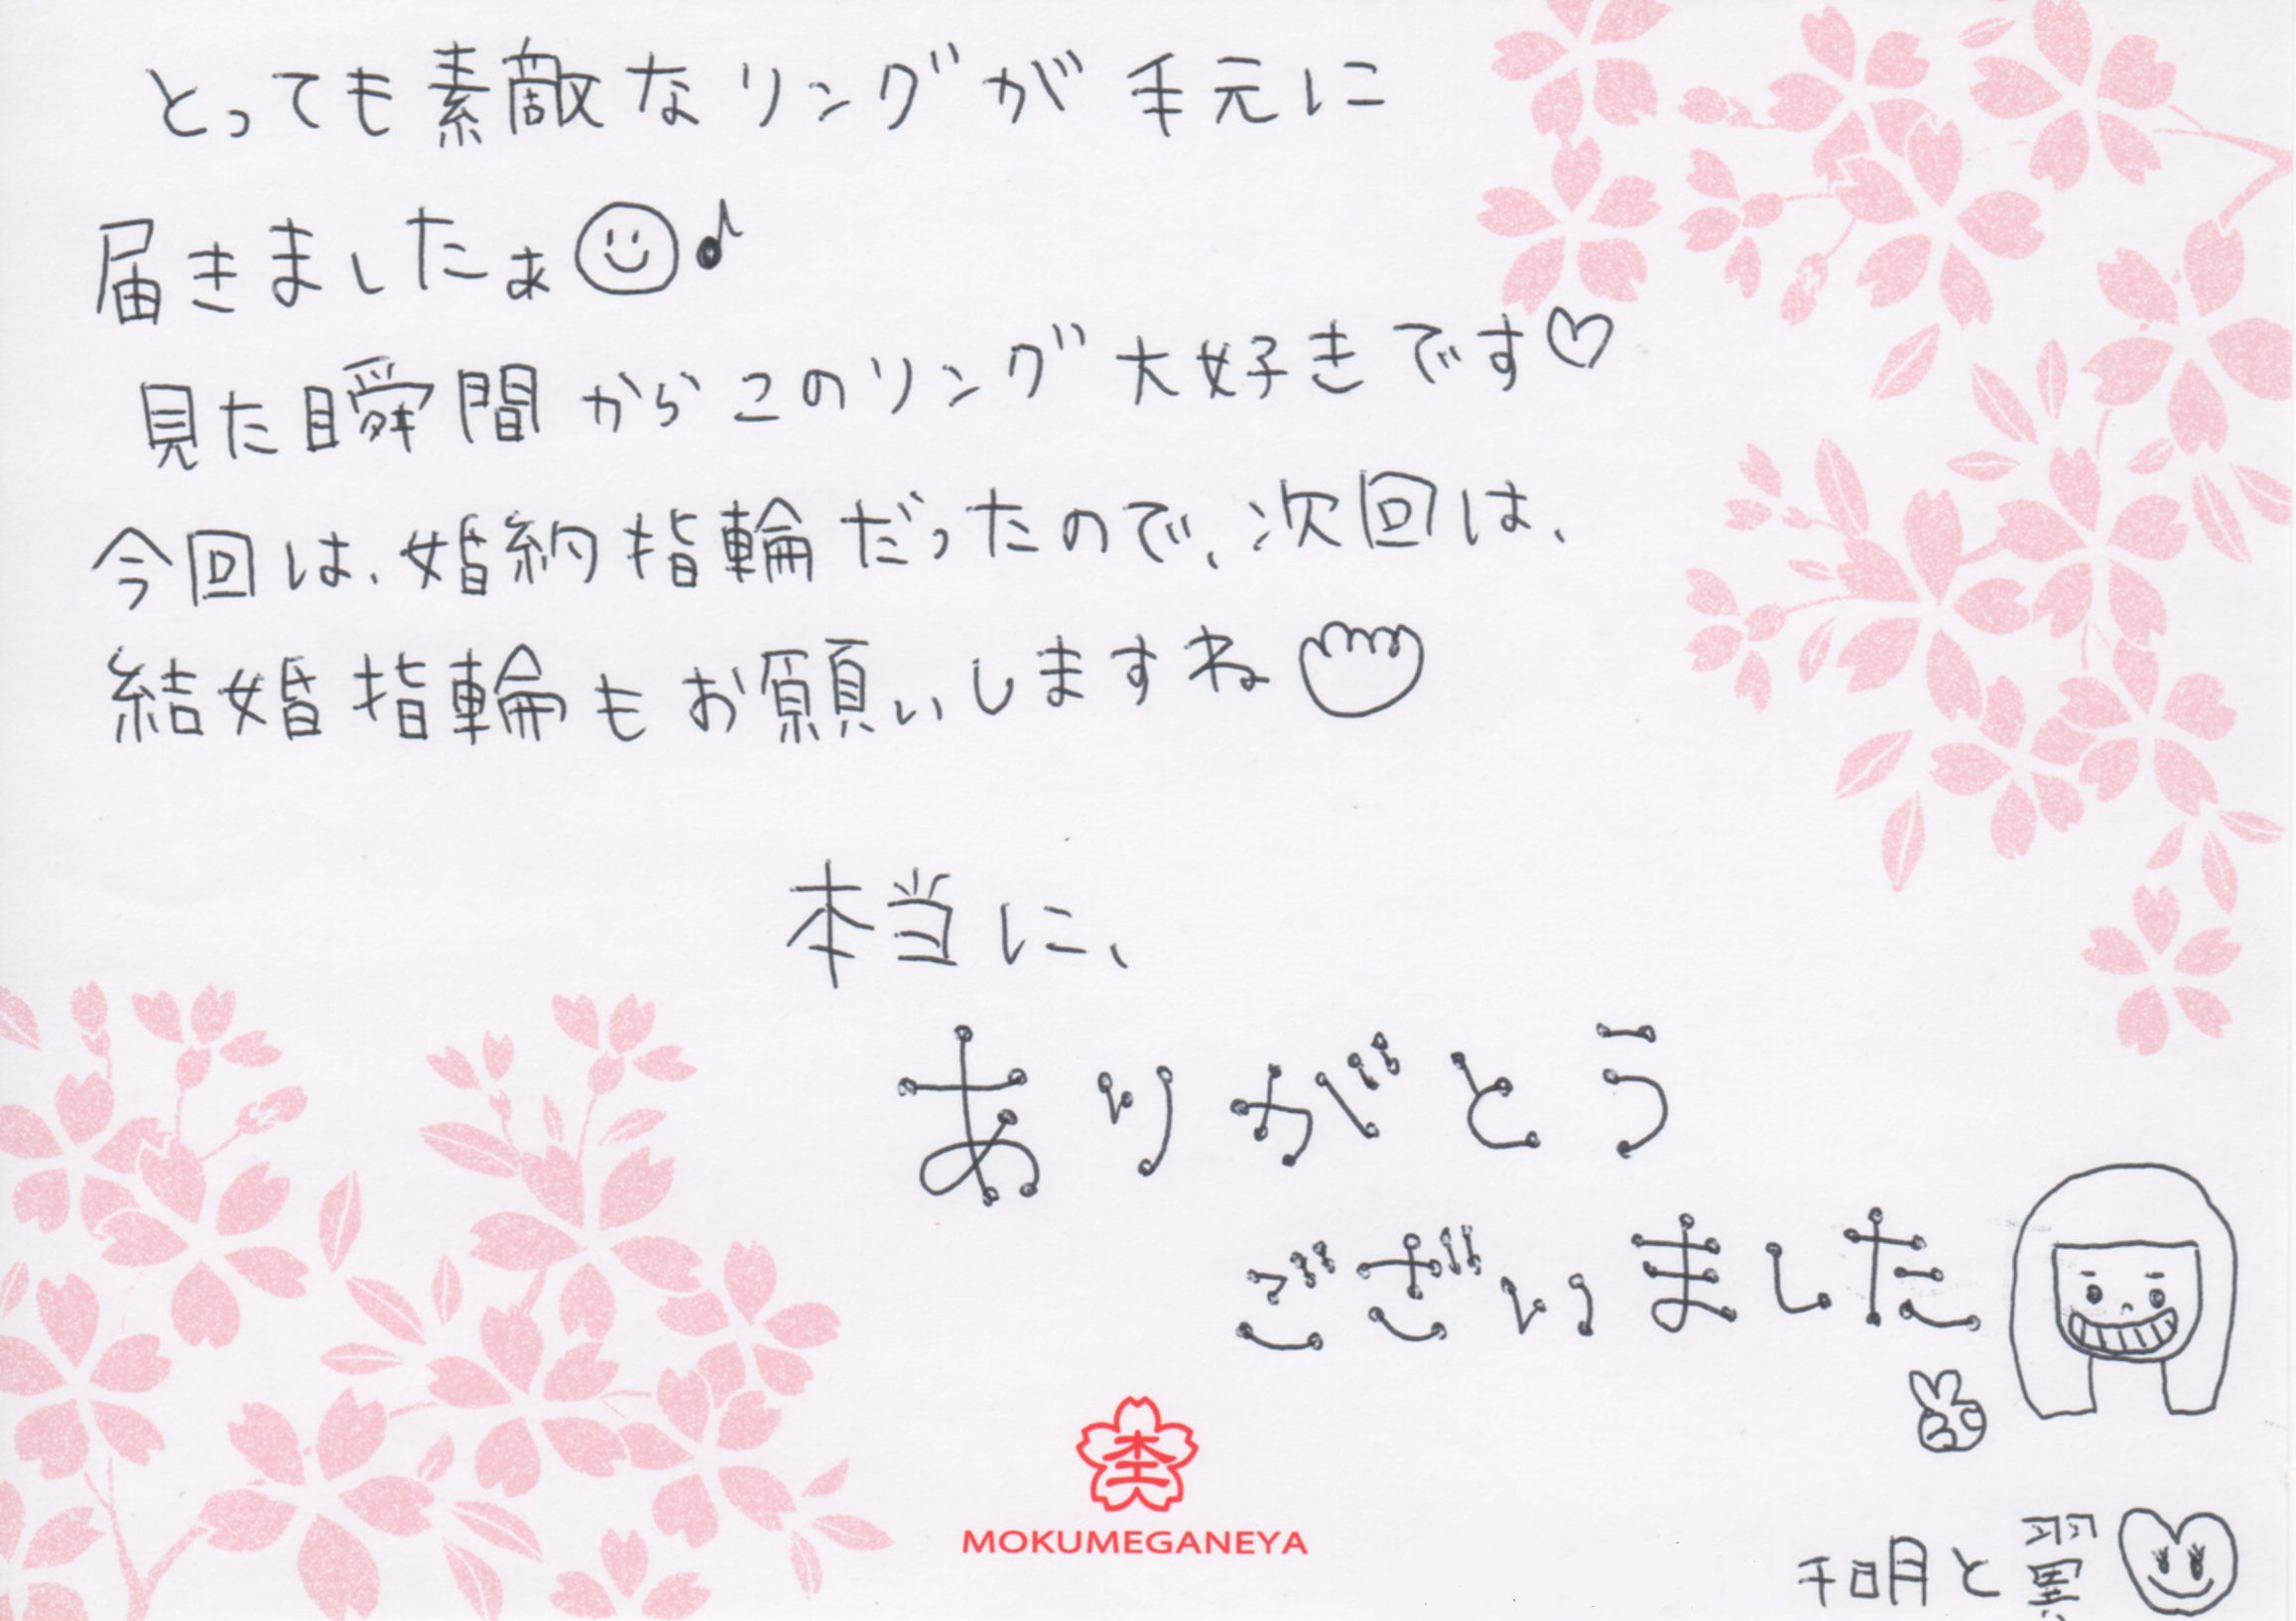 とっても素敵なリングが手元に
届きましたぁ♪
見た瞬間からこのリング大好きです♡
今回は、婚約指輪だったので、次回は、
結婚指輪もお願いしますね
本当に、
ありがとう
ございました
杢
MOKUMEGANEYA
千明と翼